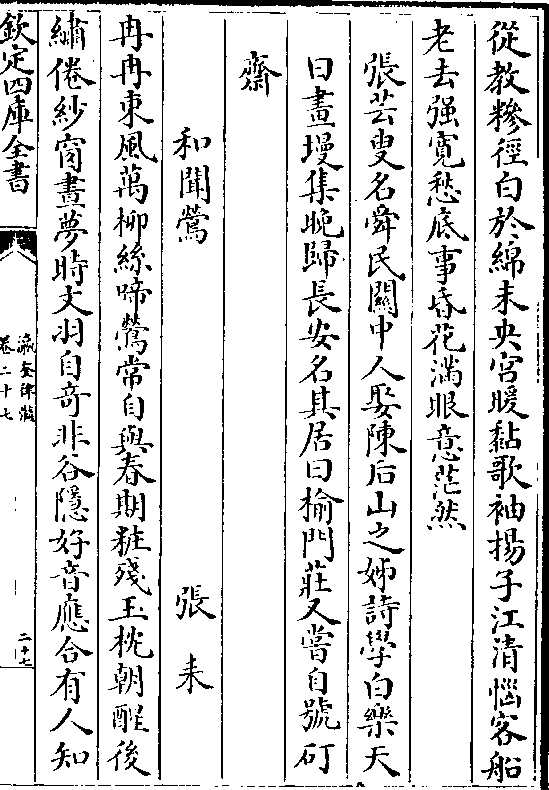 從教糝徑白於綿未央宫暖黏歌袖揚子江清惱客船
老去强寛愁底事昏花滿眼意茫然
張芸叟名舜民關中人娶陳后山之姊詩學白樂天
曰畫墁集晚歸長安名其居曰榆門莊又嘗自號矴
齋
和聞鶯
張耒
冉冉東風萬柳絲啼鶯常自與春期粧殘玉枕朝酲後
繡倦紗窗晝夢時文羽自奇非谷隱好音應合有人知
欽定四庫全書
瀛奎律髓
卷二十七
二十七